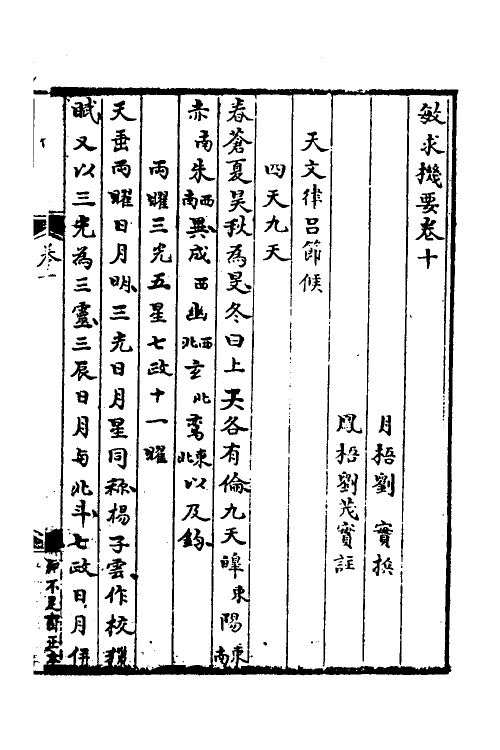 敏求機要卷十
月梧劉 實撰
鳳梧劉茂實註
天文律呂節候
四天九天
春蒼夏昊秋為旻冬曰上天各有倫九天皞東陽東南
赤南朱西南異成西幽西北玄北鸞東北以及鈞
兩曜三光五星七政十一曜
天垂兩曜日月明三光日月星同稱楊子雲作校獵
賦又以三光為三靈三辰日月与北斗七政日月併
卷十
知不足齋正本